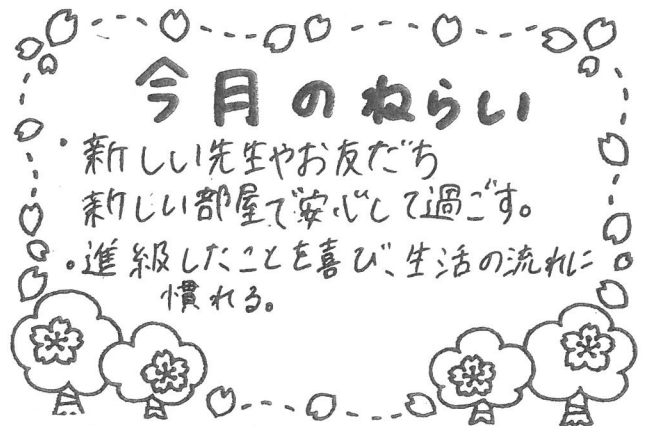 今月のねらい
・新しい先生やお友だち
新しい部屋で安心して過ごす。
・進級したことを喜び、生活の流れに
慣れる。